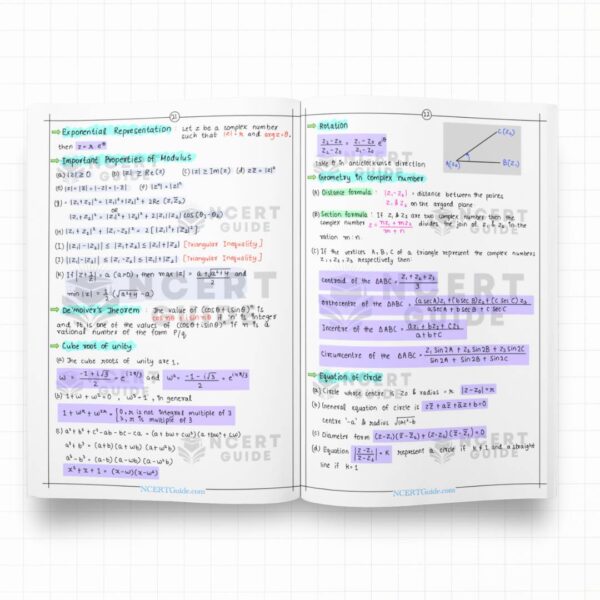 21
⇒ Exponential Representation Let z be a complex number
such that |z| = r and arg z = θ,
then z = r e^iθ
⇒ Important Properties of Modulus
(a) |z| ≥ 0 (b) |z| ≥ Re(z) (c) |z| ≥ Im(z) (d) zz̅ = |z|²
(g) = |z₁+z₂|² = |z₁|² + |z₂|² + 2Re (z₁z̅₂)
OR
|z₁+z₂|² = |z₁|² + |z₂|² + 2|z₁||z₂| cos(θ₁-θ₂)
(H) |z₁+z₂|² + |z₁-z₂|² = 2[|z₁|²+|z₂|²]
(I) ||z₁|-|z₂|| ≤ |z₁+z₂| ≤ |z₁|+|z₂| [Triangular Inequality]
(J) ||z₁|-|z₂|| ≤ |z₁-z₂| ≤ |z₁|+|z₂| [Triangular Inequality]
(K) If |z+1/z| = a (a>0), then max |z| = (a+√a²+4)/2
and
min |z| = 1/2 (√a²+4 - a)
⇒ De'moiver's Theorem The value of (cosθ+isinθ)ⁿ is
cosnθ + isin nθ if 'n' is Integer
and it is one of the values of (cosθ+isinθ)ⁿ if n is a
rational number of the form P/q
⇒ Cube root of unity
(a) The cube roots of unity are 1,
(b) 1+ω+ω² = 0, ω³ = 1, in general
a³+b³ = (a+b)(a+ωb)(a+ω²b)
a³-b³ = (a-b)(a-ωb)(a-ω²b)
x²+x+1 = (x-ω)(x-ω²)
22
⇒ Rotation
Take θ in anticlockwise direction
C(z₂)
A(z₀)
B(z₁)
⇒ Geometry in complex number
(A) Distance formula: |z₁-z₂| = distance between the points
z₁ & z₂ on the argand plane
(B) Section formula: If z₁ & z₂ are two complex number then the
complex number z = (nz₁+mz₂)/(m+n) divides the join of z₁ & z₂ in the
ration m:n.
(C) If the vertices A, B, C of a triangle represent the complex numbers
z₁, z₂, z₃ respectively then:
Centroid of the ΔABC = (z₁+z₂+z₃)/3
Orthocentre of the ΔABC = ((a sec A)z₁+(b sec B)z₂+(c sec C)z₃)/(a sec A + b sec B + c sec C)
Incentre of the ΔABC = (az₁+bz₂+cz₃)/(a+b+c)
Circumcentre of the ΔABC = (z₁ sin2A + z₂ sin2B + z₃ sin2C)/(sin2A + sin2B + sin2C)
⇒ Equation of circle
(a) Circle whose centre is z₀ & radius = r |z-z₀| = r
(b) General equation of circle is zz̅+az̅+a̅z+b=0
centre '-a' & radius √|a|²-b
(c) Diameter form (z-z₁)(z̅-z̅₂)+(z-z₂)(z̅-z̅₁)=0
(d) Equation |(z-z₁)/(z-z₂)| = k represent a circle if k≠1 and a straight
line if k=1
NCERT
GUIDE
NCERTGuide.com
NCERTGuide.com